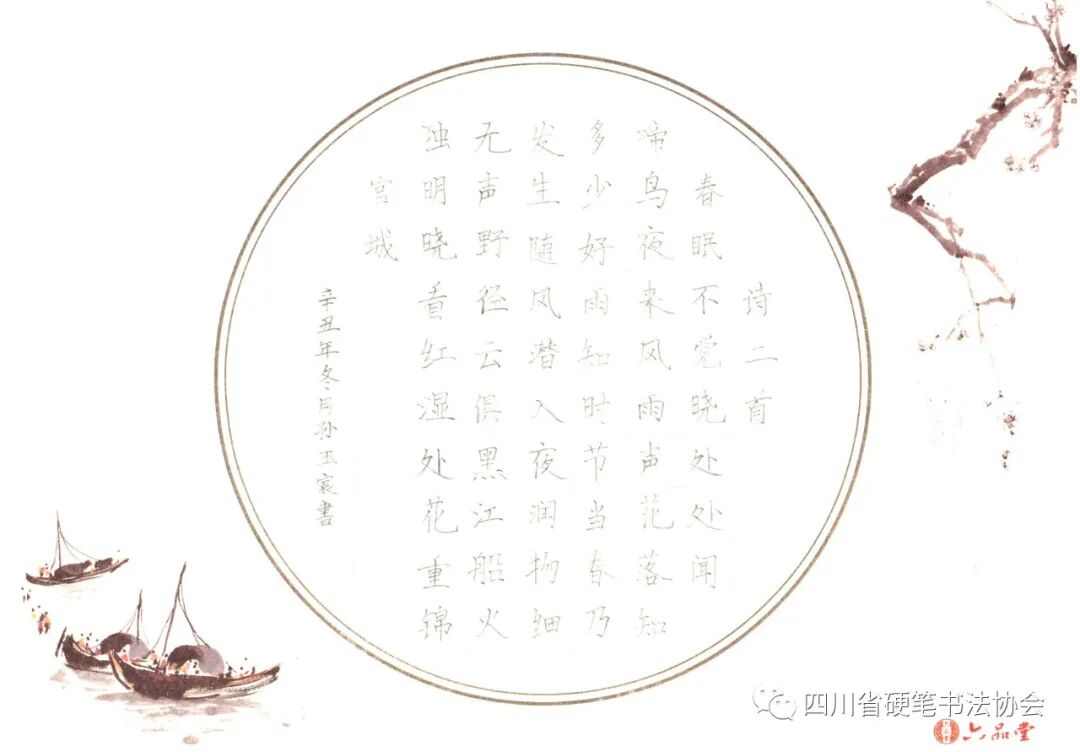 诗二首
春眠不觉晓处处闻
啼鸟夜来风雨声花落知
多少好雨知时节当春乃
发生随风潜入夜润物细
无声野径云俱黑江船火
独明晓看红湿处花重锦
宫城
辛丑年冬月孙玉宸書
四川省硬笔书法协会
六品堂